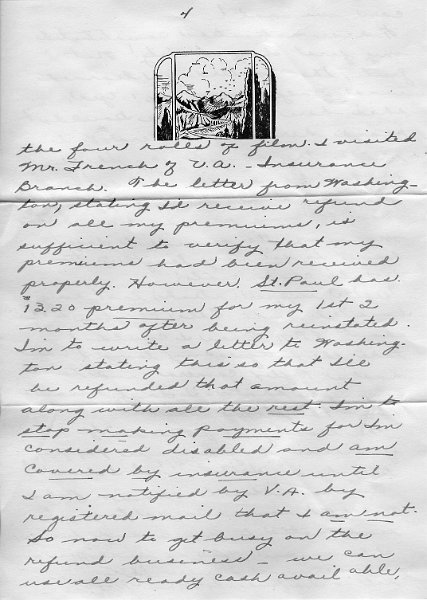 4
the four rolls of film. I visited
Mr. French of V.A. - Insurance
Branch. The letter from Washing-
ton, stating I'd receive refund
on all my premiums, is
sufficient to verify that my
premiums had been received
properly. However, St. Paul has
$13.20 premium for my 1st 2
months after being reinstated.
I'm to write a letter to Washing-
ton stating this so that I'll
be refunded that amount
along with all the rest. I'm to
stop making payments for I'm
considered disabled and am
covered by insurance until
I am notified by V.A. by
registered mail that I am not.
So now to get busy on the
refund business - we can
use all ready cash available,